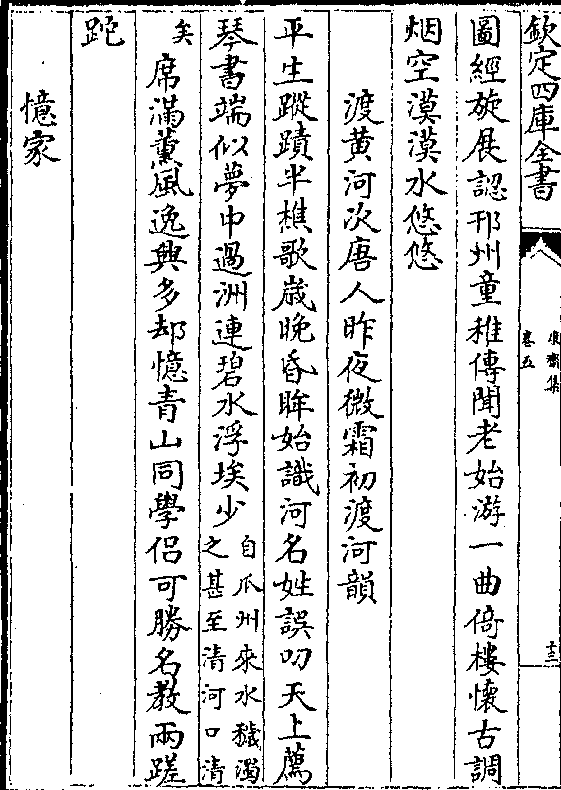 欽定四庫全書
康齋集
卷五
十三
圖經旋展認邗州童稚傳聞老始游一曲倚樓懷古調
烟空漠漠水悠悠
渡黄河次唐人昨夜微霜初渡河韻
平生蹤蹟半樵歌歲晚昏眸始識河名姓誤叨天上薦
琴書端似夢中過洲連碧水浮埃少自爪州來水穢濁之甚至清河口清
矣席滿薰風逸興多却憶青山同學侣可勝名教兩蹉
跎
憶家